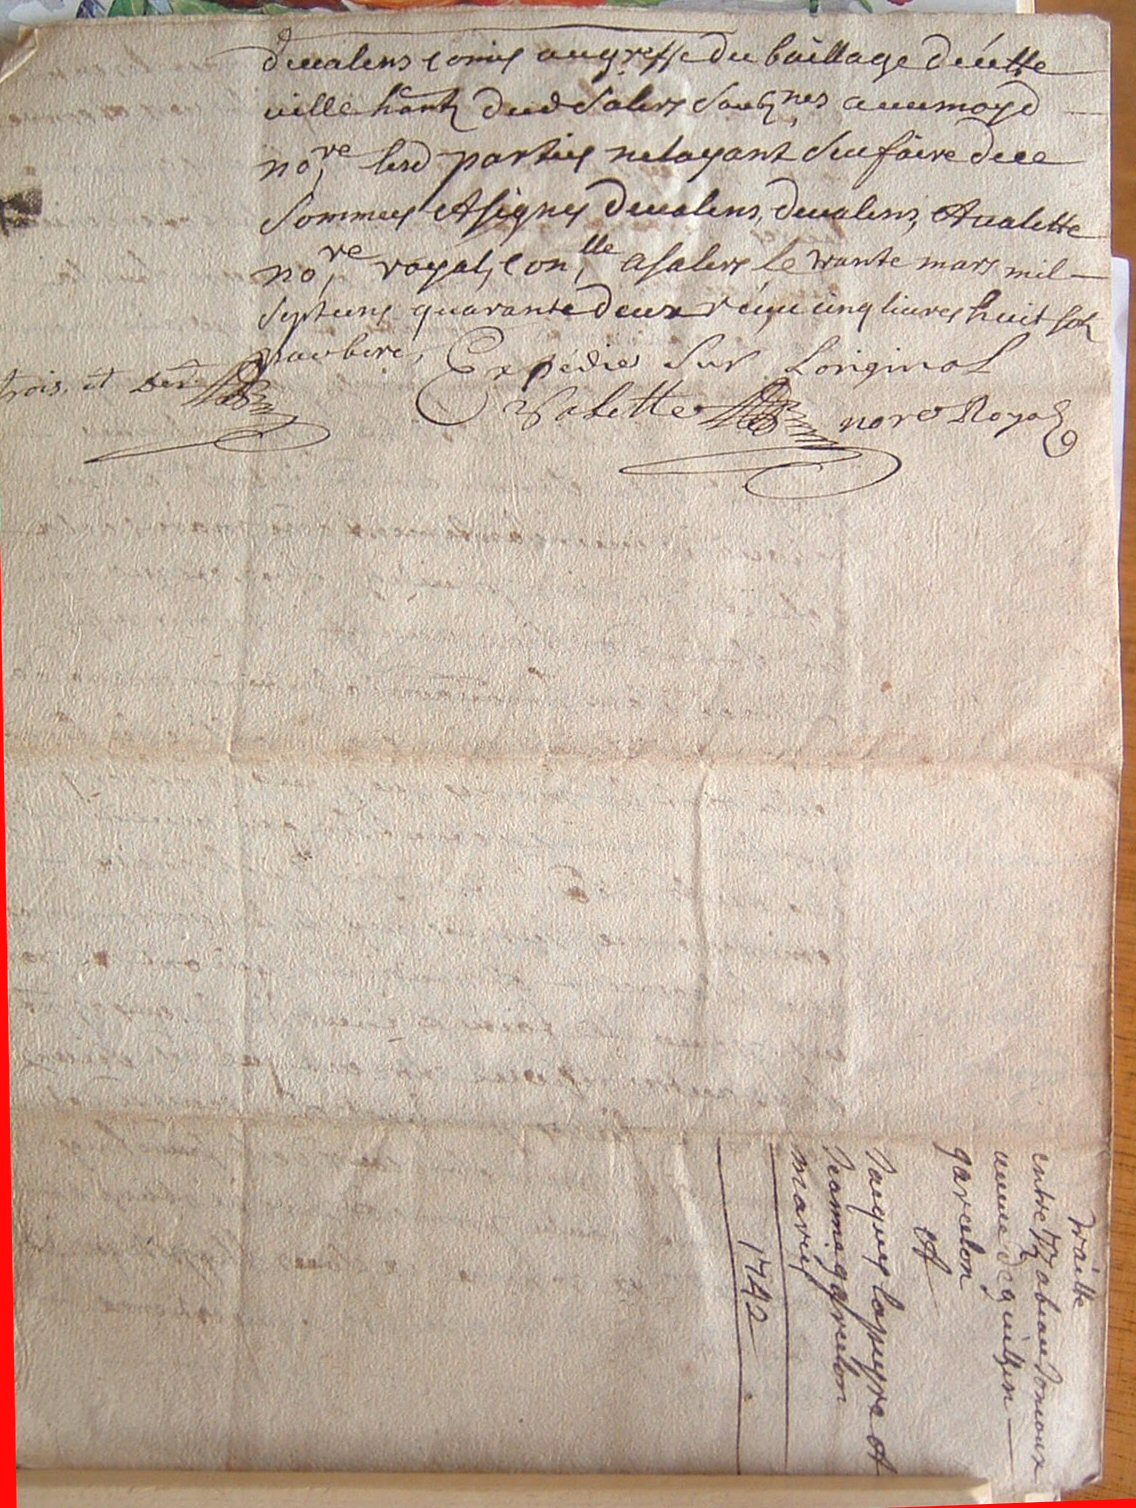 devalens comis au greffe du bailliage de cette
ville hants dud Salers soubsnes avec moyd
nore lesd parties ne layant sceu faire de ce
sommes et signes devalens, devalens, et valette
nore royal, conlle a salers le trante mars mil
sept cens quarante deux recu cinq livres huit sols
Expedie sur Loriginal
trois. et
Valette nore Royal
traitte
entre Izabeau
veuve de guillen
garcelon
et
Jacques lapeyre et
Jeanne garcelon
maries
1742